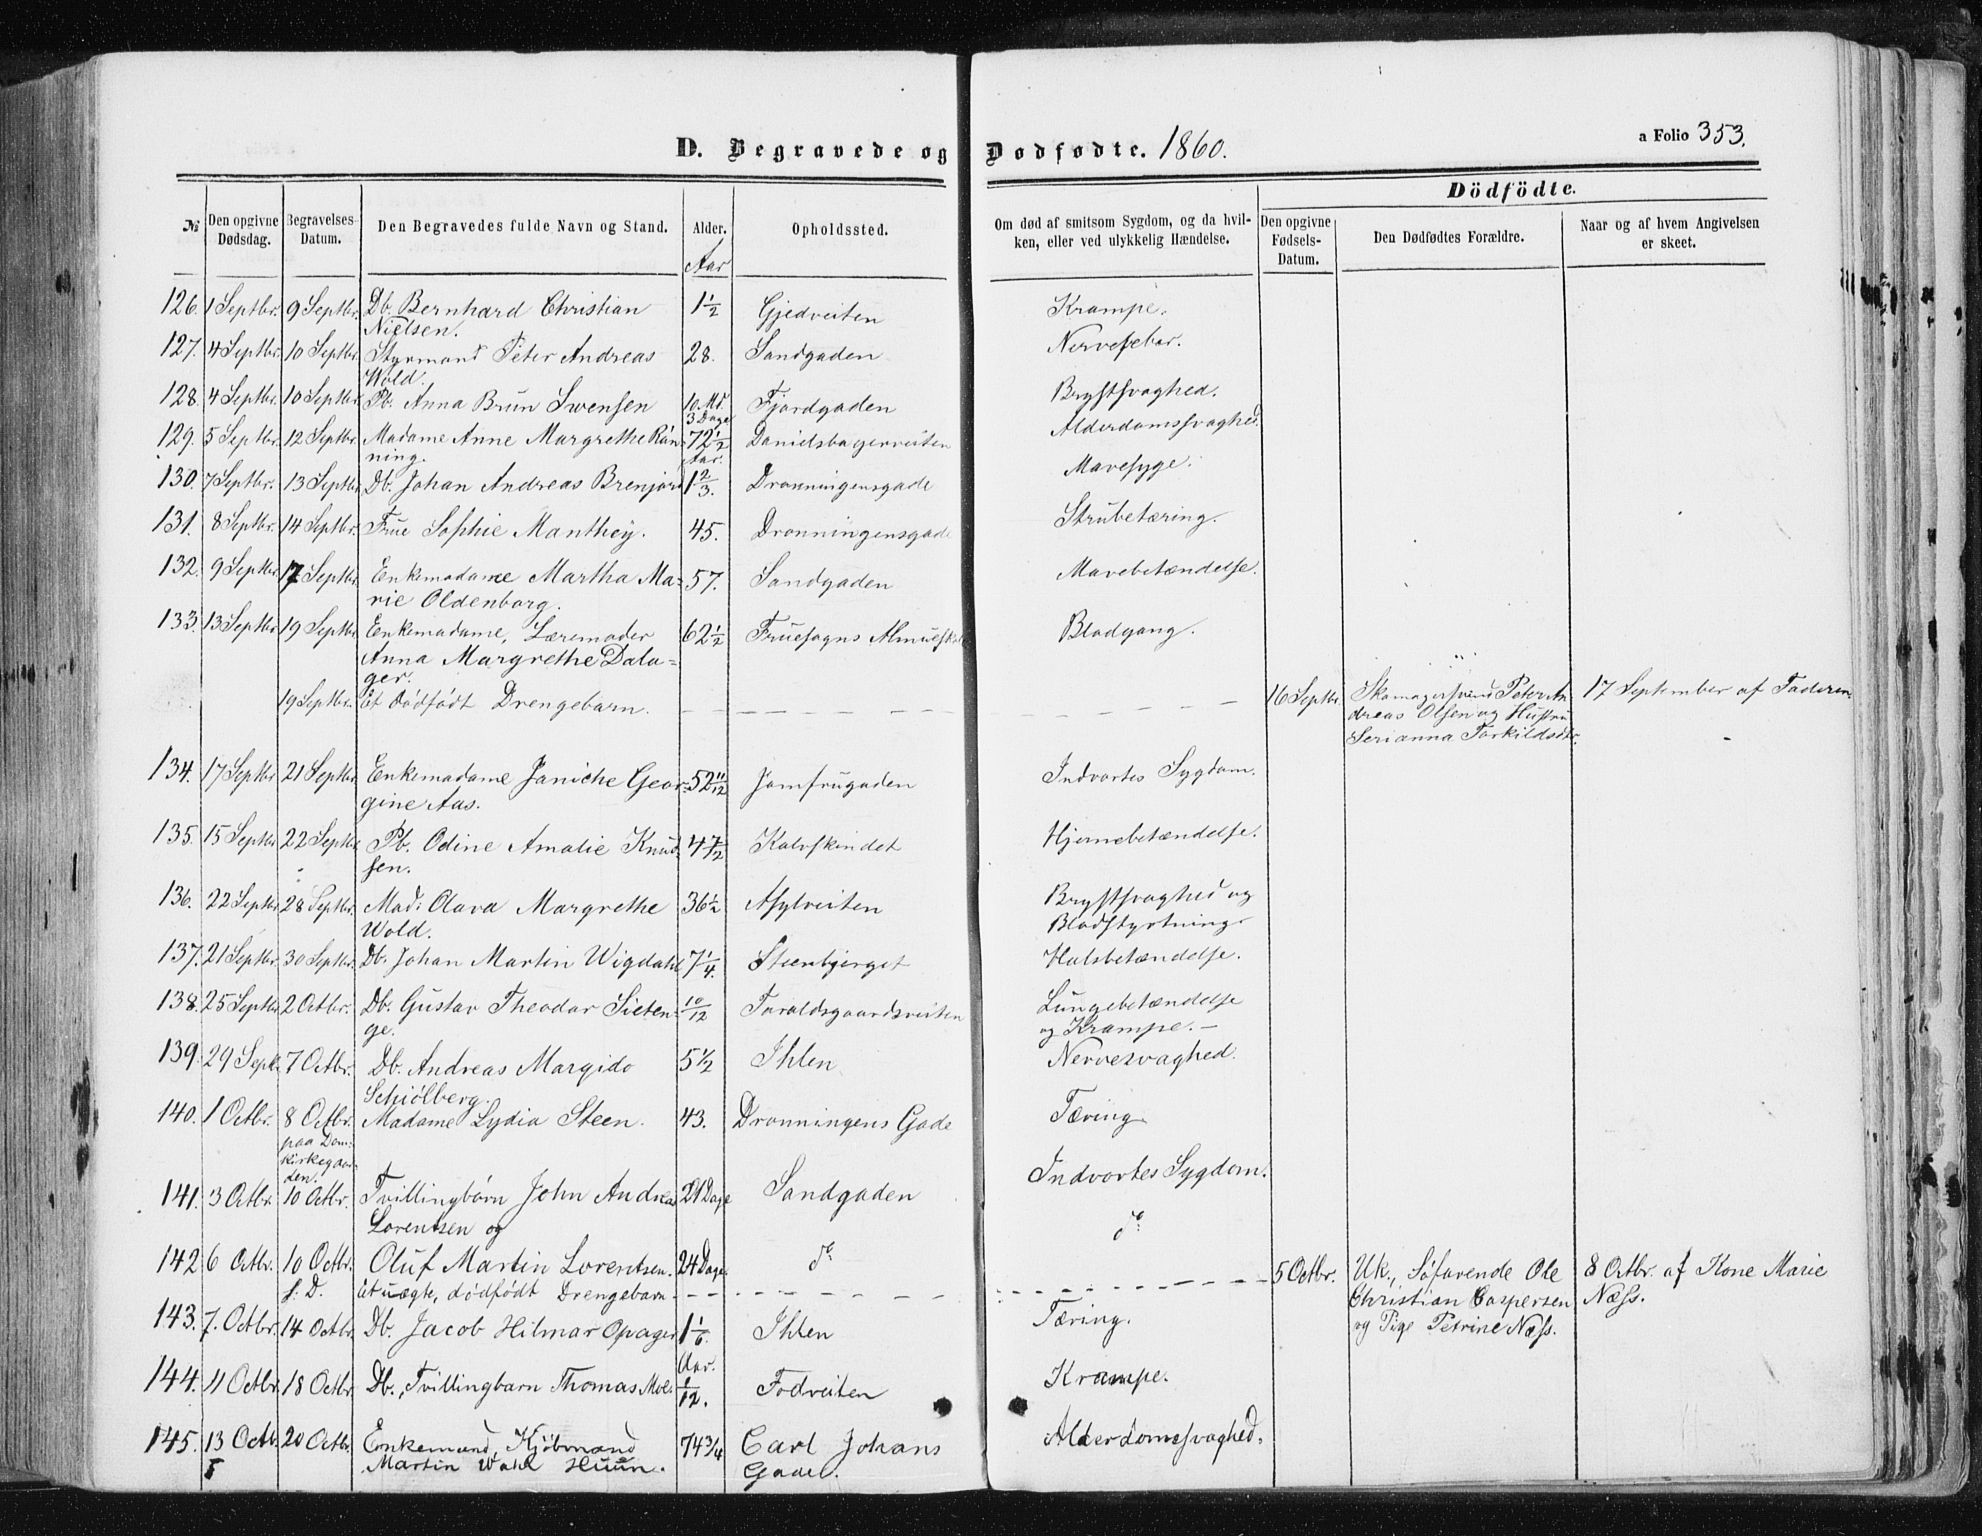 D. Begravede og Dødfødte. 1860.
a Folio 353.
№
Den opgivne Dødsdag.
Begravelses-Datum.
Den Begravedes fulde Navn og Stand.
Alder.
Aar
Opholdssted.
Om død af smitsom Sygdom, og da hvil-
ken, eller ved ulykkelig Hændelse.
Dödfödte.
Den opgivne Fødsels-Datum.
Den Dødfødtes Forældre.
Naar og af hvem Angivelsen er skeet.
126. 1 Septbr. 9 Septbr. Db. Bernhard Christian 1½ Gjedveiten Krampe.
Nielsen.
127. 4 Septbr. 10 Septbr. Styrmand Peter Andreas 28. Sandgaden Nervefeber.
Wold.
128. 4 Septbr. 10 Septbr. Pb. Anna Brun Swensen 10 Md. 3 Dage Fjordgaden Brystsvaghed.
129. 5 Septbr. 12 Septbr. Madame Anne Margrethe Rön- 72½ Aar. Danielsbagerveiten Alderdomssvaghed.
ning.
130. 7 Septbr. 13 Septbr. Db. Johan Andreas Brenjord 1 2/3. Dronningensgade Mavesyge.
131. 8 Septbr. 14 Septbr. Frue Sophie Manthey. 45. Dronningensgade Strubetæring.
132. 9 Septbr. 17 Septbr. Enkemadame Martha Ma- 57. Sandgaden Mavebetændelse.
rie Oldenborg.
133. 13 Septbr. 19 Septbr. Enkemadame, Læremoder 62½ Fruesogns Blodgang.
Anna Margrethe Dala-
ger.
19 Septbr. Et dödfödt Drengebarn. 16 Septbr. Skomagersvend Peter An- 17 September af Faderen
dreas Olsen og Hustru
Serianna Torkildsdtr.
134. 17 Septbr. 21 Septbr. Enkemadame Janiche Geor- 52 11/12 Jomfrugaden Indvortes Sygdom.
gine Aas.
135. 15 Septbr. 22 Septbr. Pb. Odine Amalie Knud- 4 7/12 Kalvskindet Hjernebetændelse.
sen.
136. 22 Septbr. 28 Septbr. Mad: Olava Margrethe 36½ Asylveiten Brystsvaghed og
Wold. Blodstyrtning.
137. 21 Septbr. 30 Septbr. Db. Johan Martin Wigdahl 7¼. Steenbjerget Halsbetændelse.
138. 25 Septbr. 2 Octbr. Db. Gustav Theodor Sieten- 10/12 Taraldsgaardsveiten Lungebetændelse
ge. og Krampe. —
139. 29 Sept. 7 Octbr. Db. Andreas Margido 5½ Ihlen Nervesvaghed.
Schiölberg.
140. 1 Octbr. 8 Octbr. Madame Lydia Steen. 43. Dronningens Gade Tæring
paa Dom-
kirkegaar-
den.
141. 3 Octbr. 10 Octbr. Tvillingbörn John Andreas 21 Dage Sandgaden Indvortes Sygdom.
Lorentsen og
142 6 Octbr. 10 Octbr. Oluf Martin Lorentsen. 24 Dage do do
s. D. et uægte, dödfödt Drengebarn 5 Octbr. Uk., Søfarende Ole 8 Octbr. af Kone Marie
Christian Caspersen Næss.
og Pige Petrine Næss.
143. 7. Octbr. 14 Octbr. Db. Jacob Hilmar Opager 1 1/6 Aar. Ihlen Tæring.
144. 11 Octbr. 18 Octbr. Db., Tvillingbarn Thomas Moe 1/12. Fodveiten Krampe.
145. 13 Octb. 20 Octbr. Enkemand, Kjöbmand 74¾ Carl Johans Alderdomssvaghed.
Martin Wahl Huun. Gade.